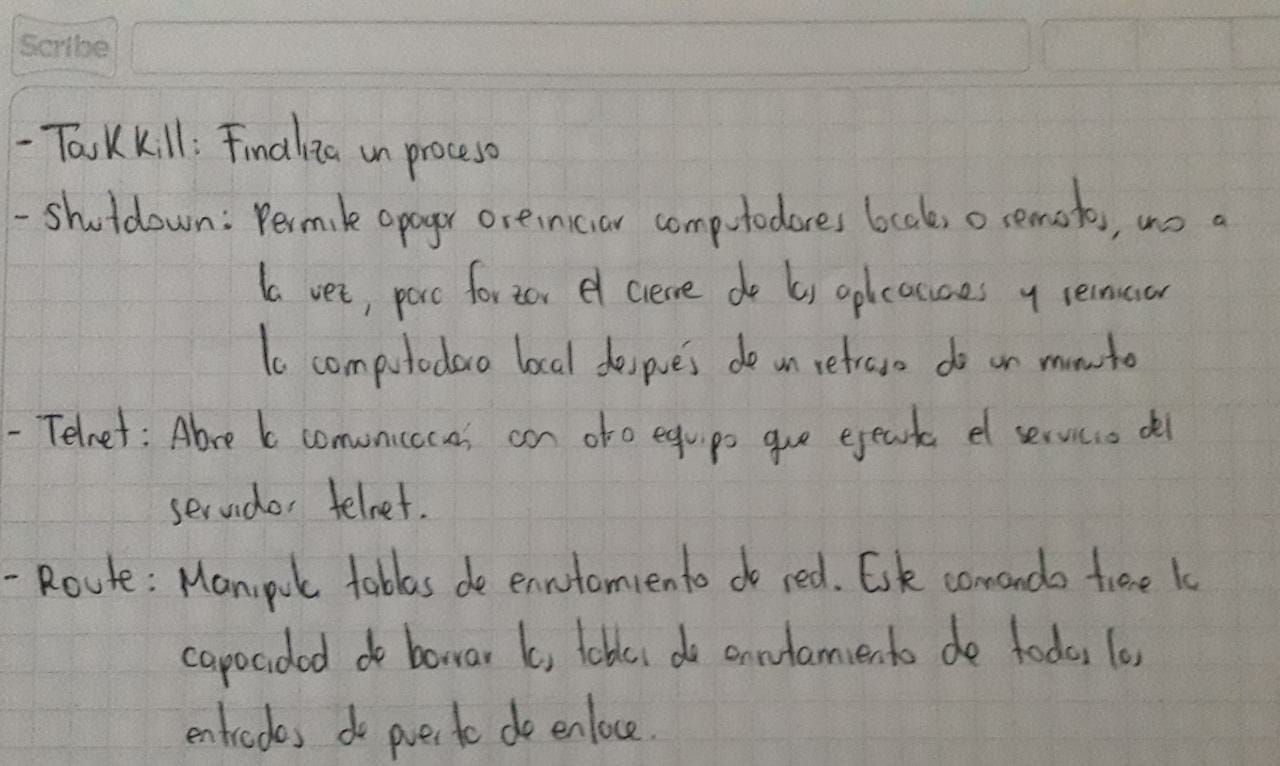 Scribe
- Taskkill: Finaliza un proceso
- Shutdown: Permite apagar o reiniciar computadores locales o remotos, uno a
la vez, para forzar el cierre de las aplicaciones y reiniciar
la computadora local después de un retraso de un minuto
- Telnet: Abre la comunicación con otro equipo que ejecuta el servicio del
servidor telnet.
- Route: Manipula tablas de enrutamiento de red. Este comando tiene la
capacidad de borrar las tablas de enrutamiento de todas las
entradas de puerta de enlace.